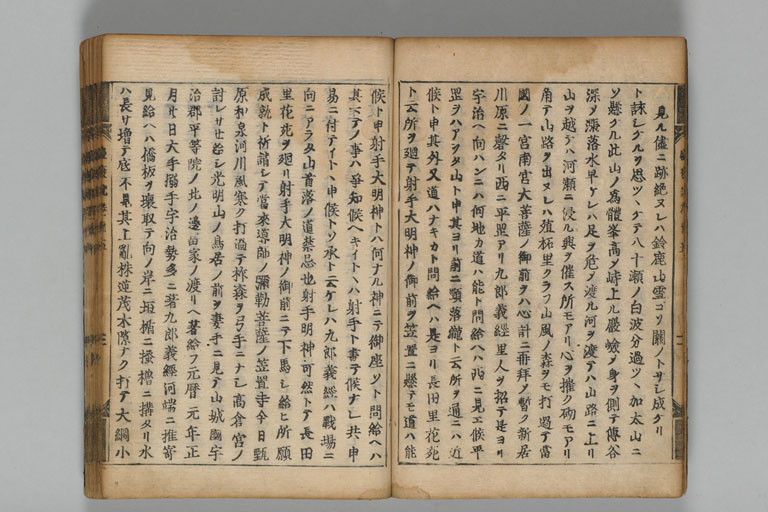 見ル儘ニ跡絶ヌレハ鈴鹿山霊コソ關ノトサシ成ケリ
ト詠シケルヲ思ツヽケテ八十瀬ノ白波分過ツヽ加太山ニ
ソ懸ケル此山ノ為體峯高ノ峙上ル巖嶮ノ身ヲ側テ傳谷
深ヲ漲落水早ケレハ足ヲ危ノ渡ル河ヲ渡テハ山路ニ上リ
山ヲ越テハ河瀬ニ浸ル興ヲ催ス所モアリ心ヲ摧ク砌モアリ
角テ山路ヲ出ヌレハ殖杯里クラフ山風ノ森ヲモ打過テ當
國ノ一宮南宮大菩薩ノ御前ヲハ心計ニ再拜ノ暫ク新居
川原ニ磬タリ西ニ平置アリ九郎義經里人ヲ招テ是ヨリ
宇治ヘ向ハンニハ何地カ道ハ能ト問給ヘハ西ニ見エ候平
置ヲハアツタ山ト申其ヨリ前ニ頭落瀧ト云所ヲ通ニハ近
候ト申其外又道ハナキカト問給ヘハ是ヨリ長田里花苑
ト云所ヲ廻テ射手大明神ノ御前ヲ笠置ニ懸テモ道ハ能
候ト申射手大明神トハ何ナル神ニテ御座ソト問給ヘハ
其下ノ事ハ爭知候ヘキイトハ射手ト書テ候ナレ共申
易ニ付テイトヽ申候トソ承ト云ケレハ九郎義經ハ戰場ニ
向ニアラタ山首落ノ道禁忌也射手明神可然トテ長田
里花苑ヲ廻リ射手大明神ノ御前ニテ下馬シ給ヒ所願
成就ト祈請シテ當來導師ノ彌勒菩薩ノ笠置寺今日甁
原和泉河川風寒ク打過テ柞森ヲ弓手ニナシ高倉宮ノ
討レサセ給シ光明山ノ鳥居ノ前ヲ妻手ニ見テ山城國宇
治郡平等院ノ北ノ邊富家ノ渡リヘ著給フ元暦元年正
月廿日大手搦手宇治勢多ニ著九郎義經河端ニ推寄
見給ヘハ橋板ヲ壞取テ向ノ岸ニ垣楯ニ搔櫓ニ構タリ水
ハ長サ増テ底不見其上亂株逆茂木隙ナク打テ大綱小